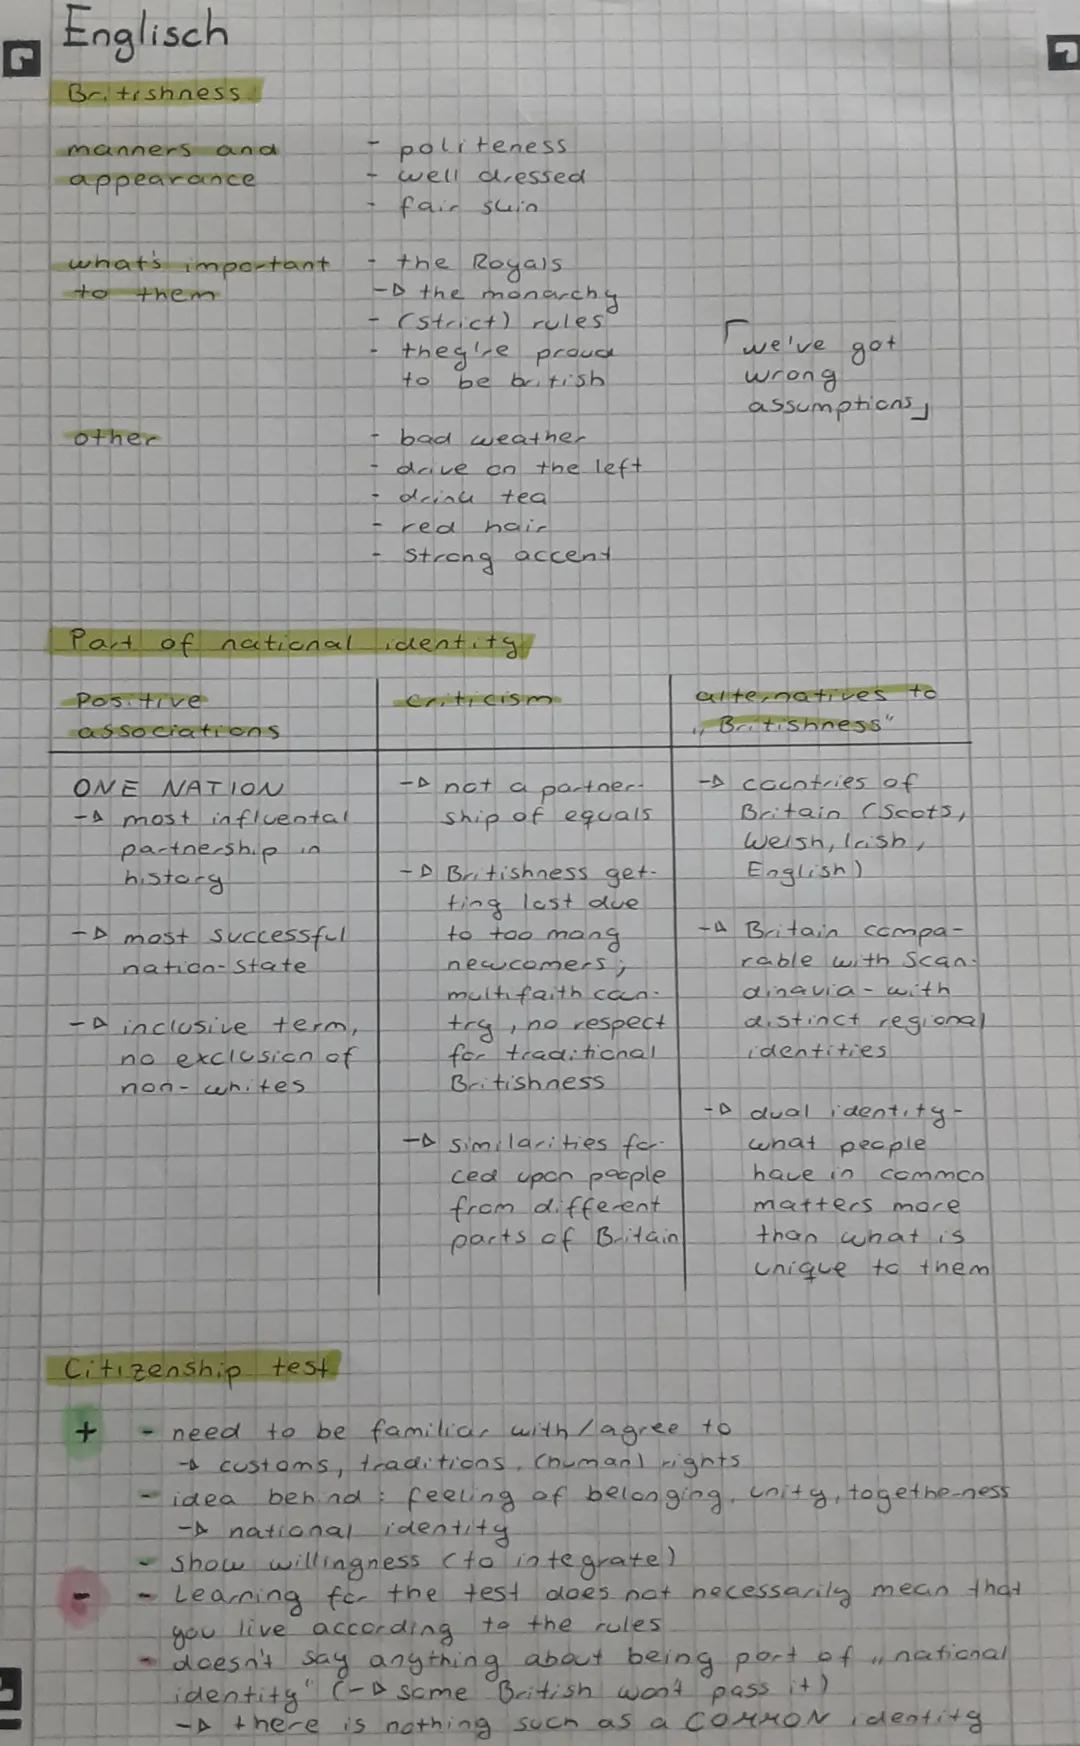 Englisch
Britishness
manners and
appearance
- politeness
- well dressed
- fair skin
what's important
to them
- the Royals
-> the monarchy
- (strict) rules
- they're proud
to be british
⌈we've got
wrong
assumptions⌋
other
- bad weather
- drive on the left
- drink tea
- red hair
- strong accent
Part of national identity
Positive
associations
ONE NATION
-> most influental
partnership in
history
-> most successful
nation-state
-> inclusive term,
no exclusion of
non-whites
criticism
-> not a partner-
ship of equals
-> Britishness get-
ting lost due
to too many
newcomers;
multifaith coun-
try, no respect
for traditional
Britishness
-> similarities for-
ced upon people
from different
parts of Britain
alternatives to
„Britishness"
-> countries of
Britain (Scots,
Welsh, Irish,
English)
-> Britain compa-
rable with Scan-
dinavia - with
distinct regional
identities
-> dual identity -
what people
have in common
matters more
than what is
unique to them
Citizenship test
+ - need to be familiar with/agree to
-> customs, traditions, (human) rights
- idea behind: feeling of belonging, unity, togetherness
-> national identity
- show willingness (to integrate)
- - Learning for the test does not necessarily mean that
you live according to the rules
- doesn't say anything about being part of „national
identity" (-> some British won't pass it)
-> there is nothing such as a COMMON identity